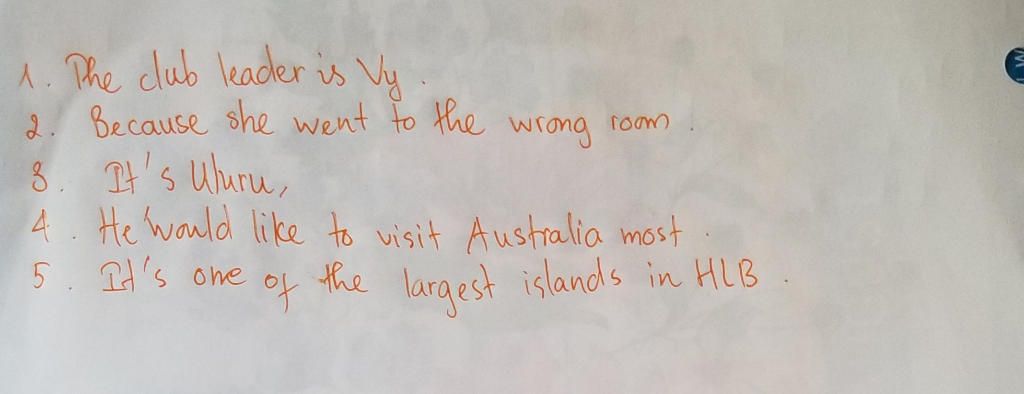 1. The club leader is Vy.
2. Because she went to the wrong room.
3. It's Uluru,
4. He would like to visit Australia most.
5. It's one of the largest islands in HLB.